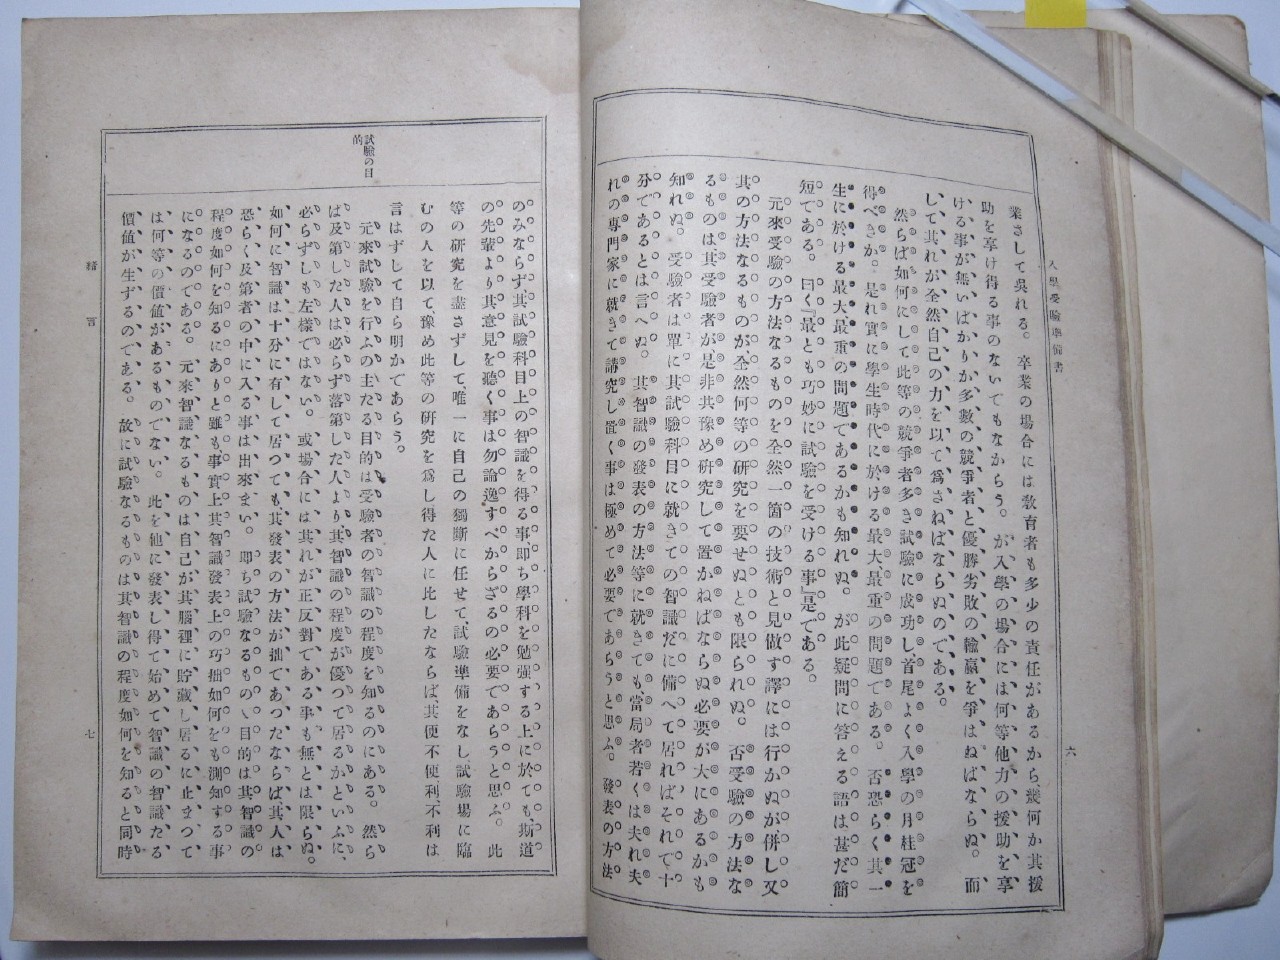 入學受驗準備書
六
業さして吳れる。卒業の場合には敎育者も多少の責任があるから、幾何か其援
助を享け得る事のないでもなからう。が入學の場合には何等他力の援助を享
ける事が無いばかりか多數の競爭者と優勝劣敗の輸贏を爭はねばならぬ。而
して其れが全然自己の力を以て爲さねばならぬのである。
然らば如何にして此等の競爭者多き試驗に成功し、首尾よく入學の月桂冠を
得べきか。是れ實に學生時代に於ける最大最重の問題である。否恐らく其一
生に於ける最大最重の問題であるかも知れぬ。が此疑問に答える語は甚だ簡
短である。曰く『最とも巧妙に試驗を受ける事』是である。
元來受驗の方法なるものを全然一箇の技術と見做す譯には行かぬが、併し又
其の方法なるものが全然何等の硏究を要せぬとも限られぬ。否受驗の方法な
るものは、其受驗者が是非共豫め硏究して置かねばならぬ必要が大にあるかも
知れぬ。受驗者は單に其試驗科目に就きての智識だに備へて居ればそれで十
分であるとは言へぬ。其智識の發表の方法等に就きても、當局者若くは夫れ夫
れの專門家に就きて講究し置く事は極めて必要であらうと思ふ。發表の方法
試驗の目
的
のみならず其試驗科目上の智識を得る事、即ち學科を勉强する上に於ても、斯道
の先輩より其意見を聽く事は勿論逸すべからざるの必要であらうと思ふ。此
等の硏究を盡さずして、唯一に自己の獨斷に任せて、試驗準備をなし試驗場に臨
むの人を以て、豫め此等の硏究を爲し得た人に比したならば、其便不便利、不利は
言はずして自ら明かであらう。
元來試驗を行ふの主たる目的は受驗者の智識の程度を知るのにある。然ら
ば及第した人は必らず落第した人より、其智識の程度が優つて居るかといふに、
必らずしも左樣ではない。或場合には其れが正反對である事も無とは限らぬ。
如何に智識は十分に有して居つても、其發表の方法が拙であつたならば其人は
恐らく及第者の中に入る事は出來まい。即ち試驗なるもの丶目的は其智識の
程度如何を知るにありと雖も、事實上其智識發表上の巧拙如何をも測知する事
になるのである。元來智識なるものは自己が其腦裡に貯藏し居るに止まつて
は何等の價値があるものでない。此を他に發表し得て始めて智識の智識たる
價値が生ずるのである。故に試驗なるものは其智識の程度如何を知ると同時
緖言
七